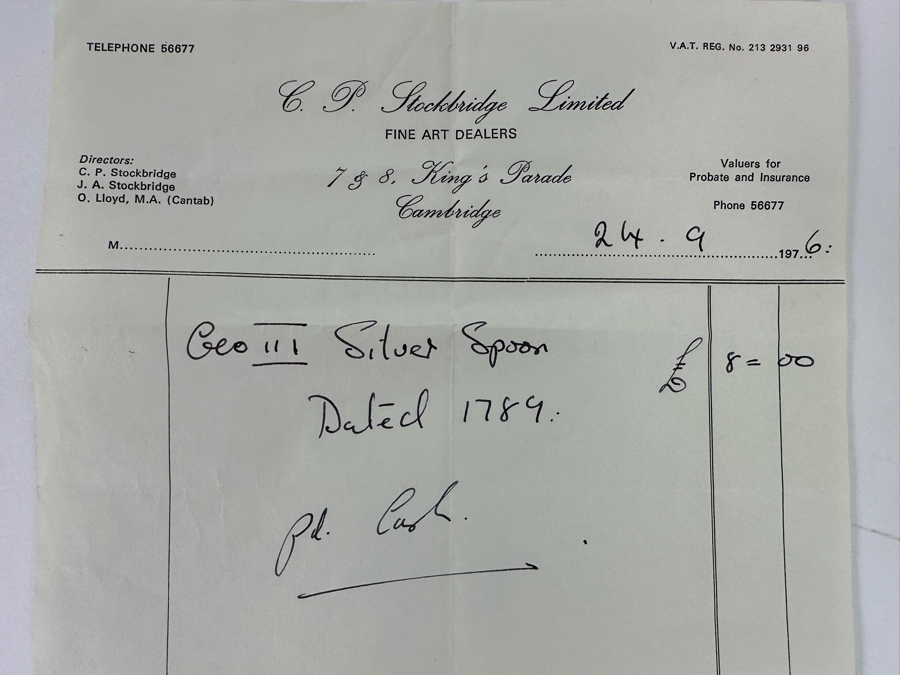 TELEPHONE 56677
V.A.T. REG. No. 213 2931 96
C. P. Stockbridge Limited
FINE ART DEALERS
Directors:
C. P. Stockbridge
J. A. Stockbridge
O. Lloyd, M.A. (Cantab)
7 & 8, King's Parade
Cambridge
Valuers for
Probate and Insurance
Phone 56677
M........................................................
24 . 9 1976:
Geo III Silver Spoon £ 8 = 00
Dated 1789.:
pd. Cash.